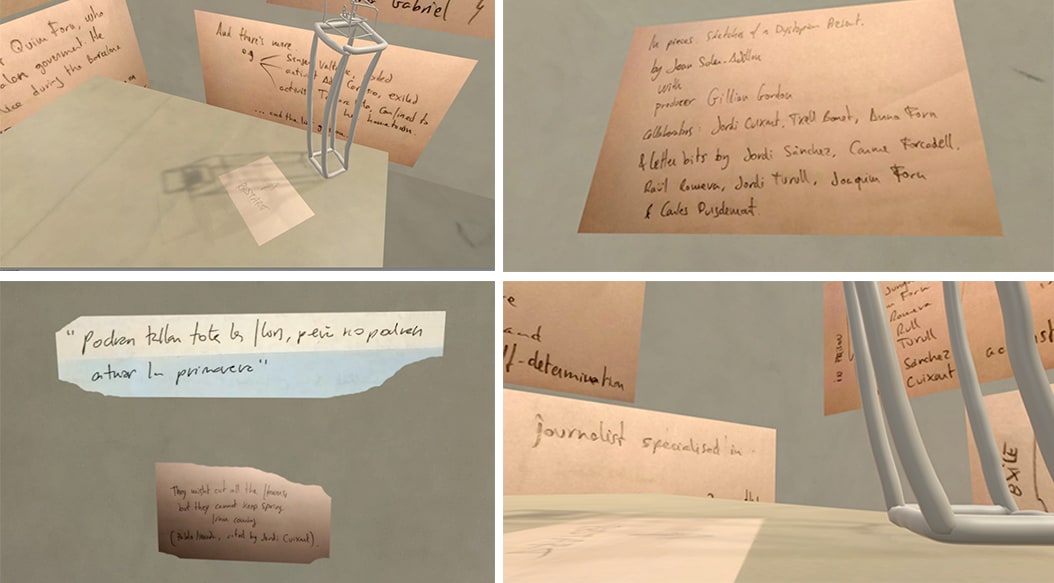 Quim Forn, who
government. He
during the Barcelona
Gabriel y
And there's more.
eg
exiled
activist
confined to
her hometown.
... and the
RESTART
In pieces. Sketches of a Dystopian Resort.
by Joan Soler-Adillon
with
producer Gillian Gordon
Collaborators: Jordi Cuixart, Txell Bonet, Anna Forn
& Letter bits by Jordi Sánchez, Carme Forcadell,
Raül Romeva, Jordi Turull, Joaquim Forn
& Carles Puigdemont.
"Podran tallar totes les flors, però no podran
aturar la primavera"
They might cut all the flowers
but they cannot keep spring
from coming
(Pablo Neruda, cited by Jordi Cuixart).
and
-determination
journalist specialised in
Forn
Romeva
Rull
Turull
Sànchez
Cuixart
EXILE